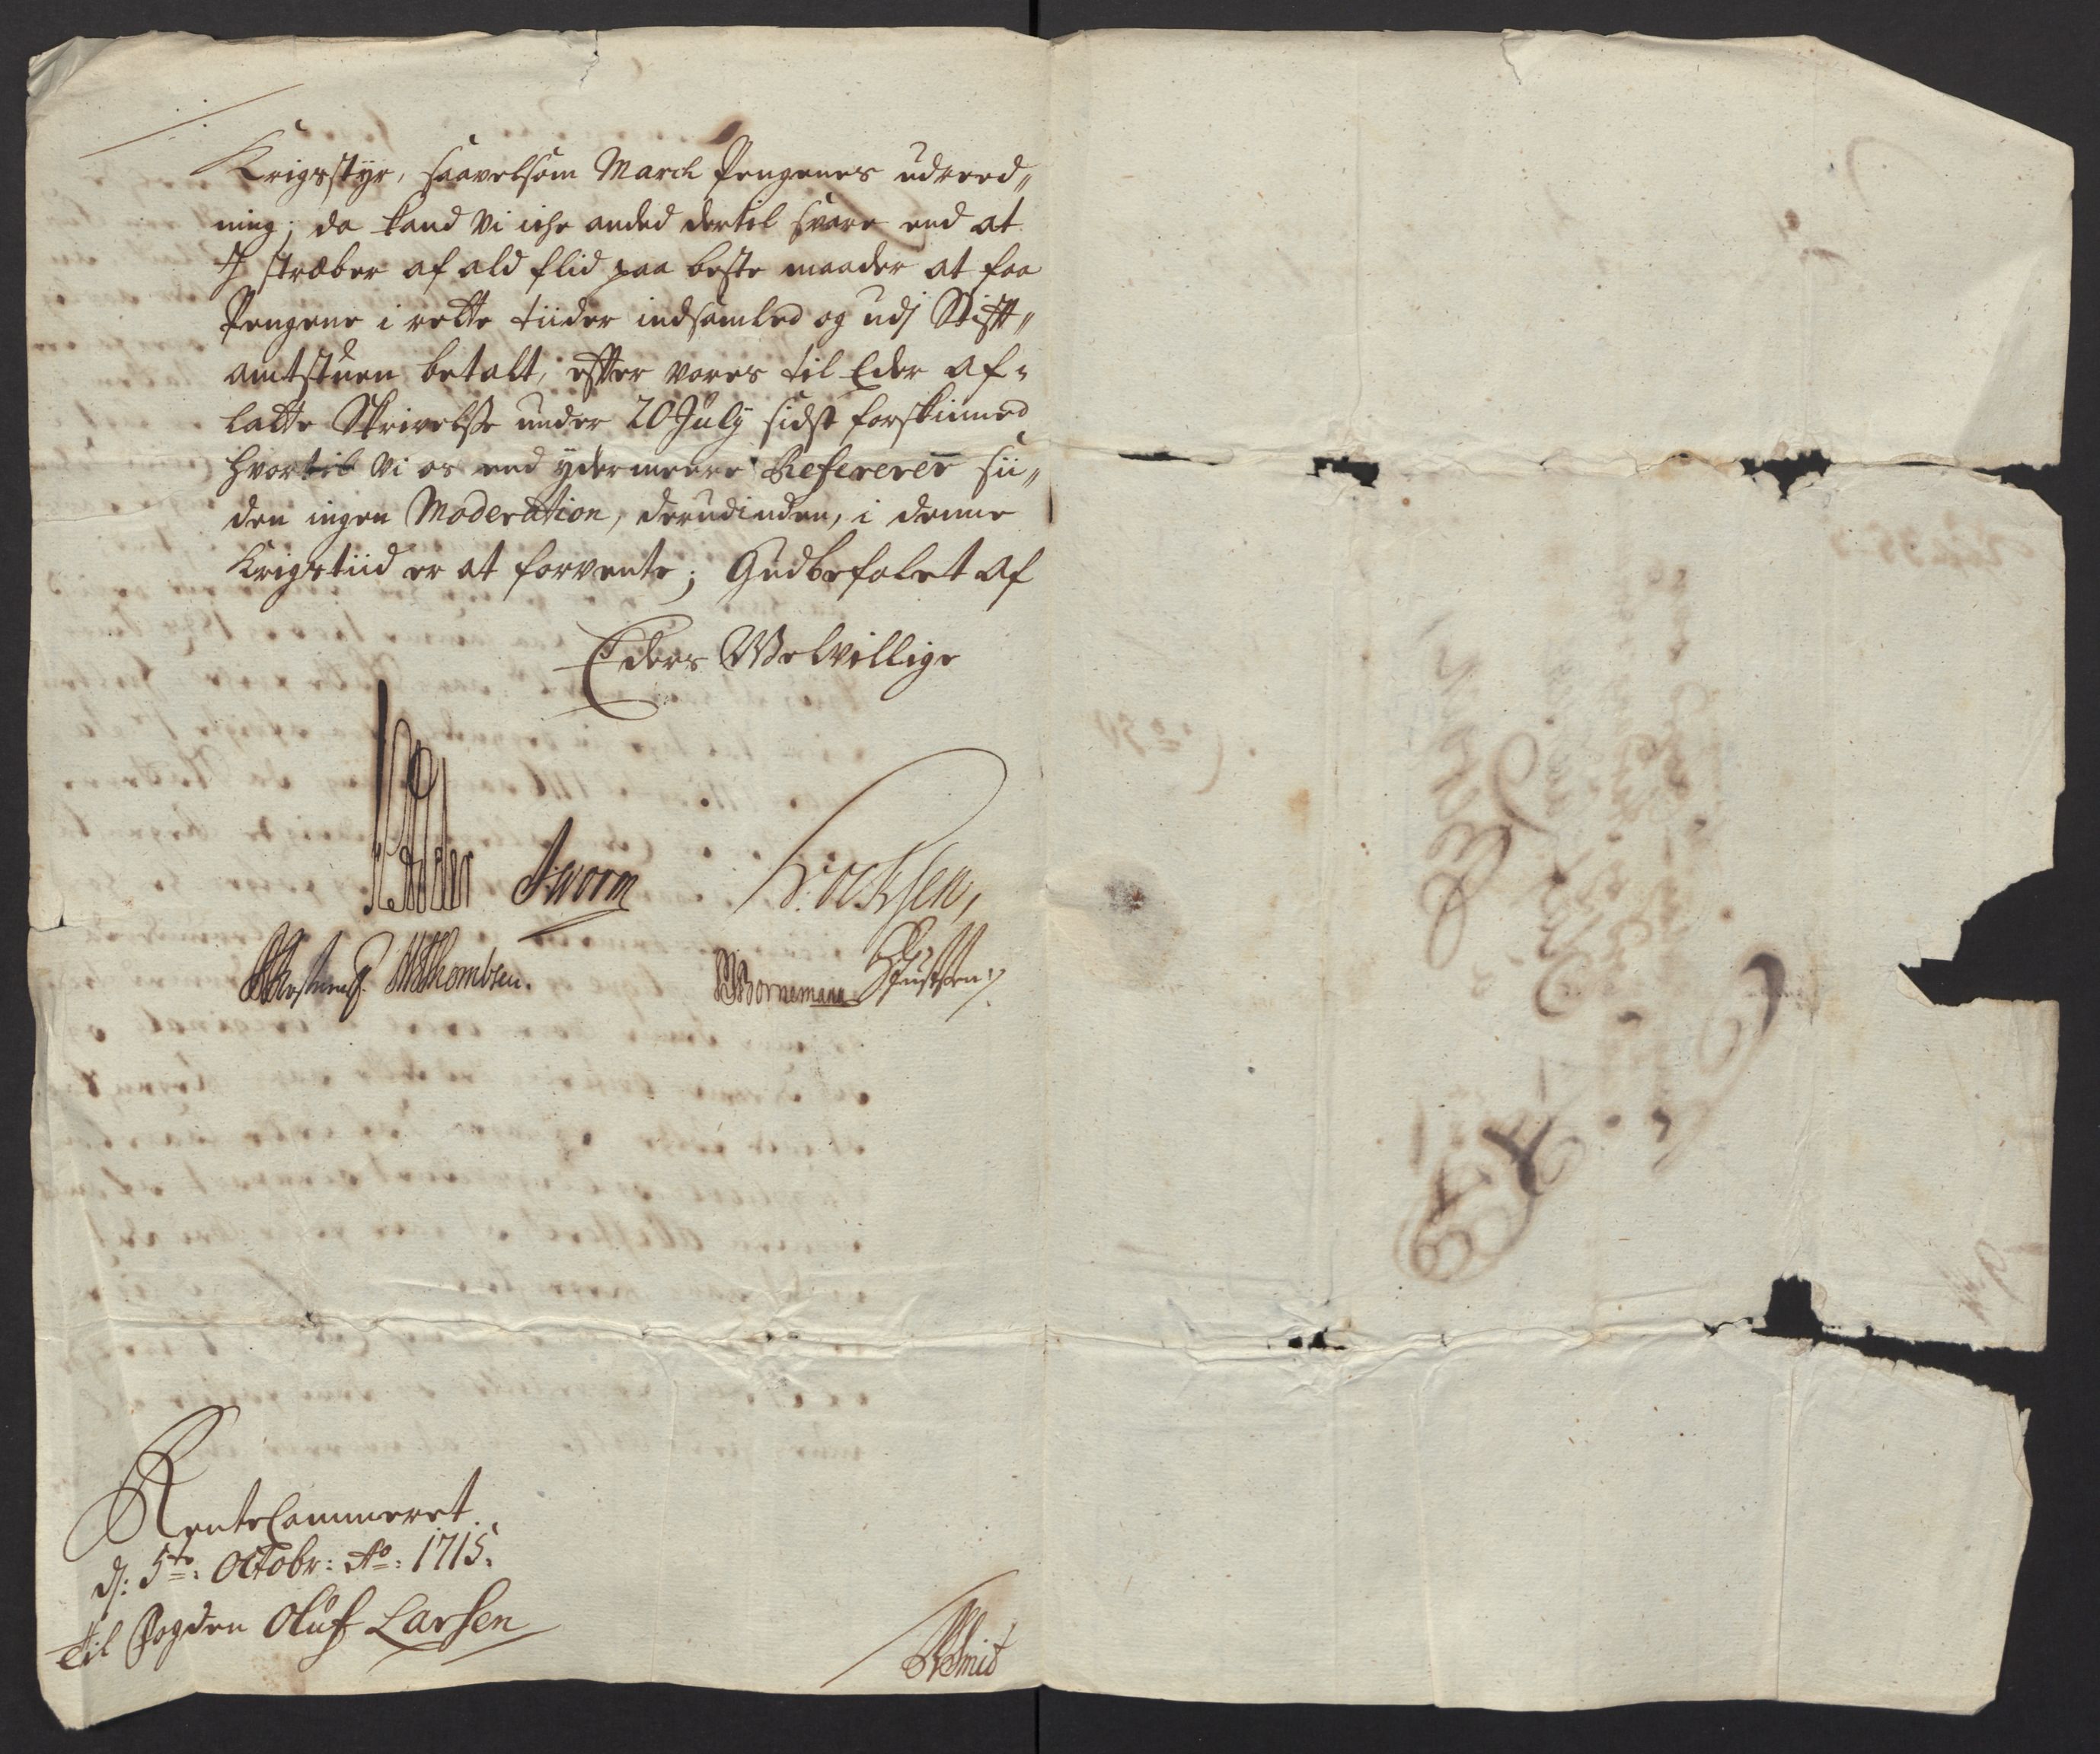 Krigsstyr, saavelsom March Pengenes udreed„
ning; da kand Vi iche anded dertil svare end at
I stræber af ald flid paa beste maader at faa
Pengene i rette tiider indsamled og udj Stifft„
amtstuen betalt, effter vores til Eder af=
latte Skrivelsse under 20 July sidst forskinned
hvortil Vi os end ydermeere Refererer sii„
den ingen Moderation, derudinden, i denne
Krigstiid er at forvente; Gudbefalet af
Eders Velvillige
JWorm
Thombsen.
Bornemann
RenteCammeret
d: 5te: Octobr: Ao: 1715.
Til Fogden Oluf Larsen
Smid